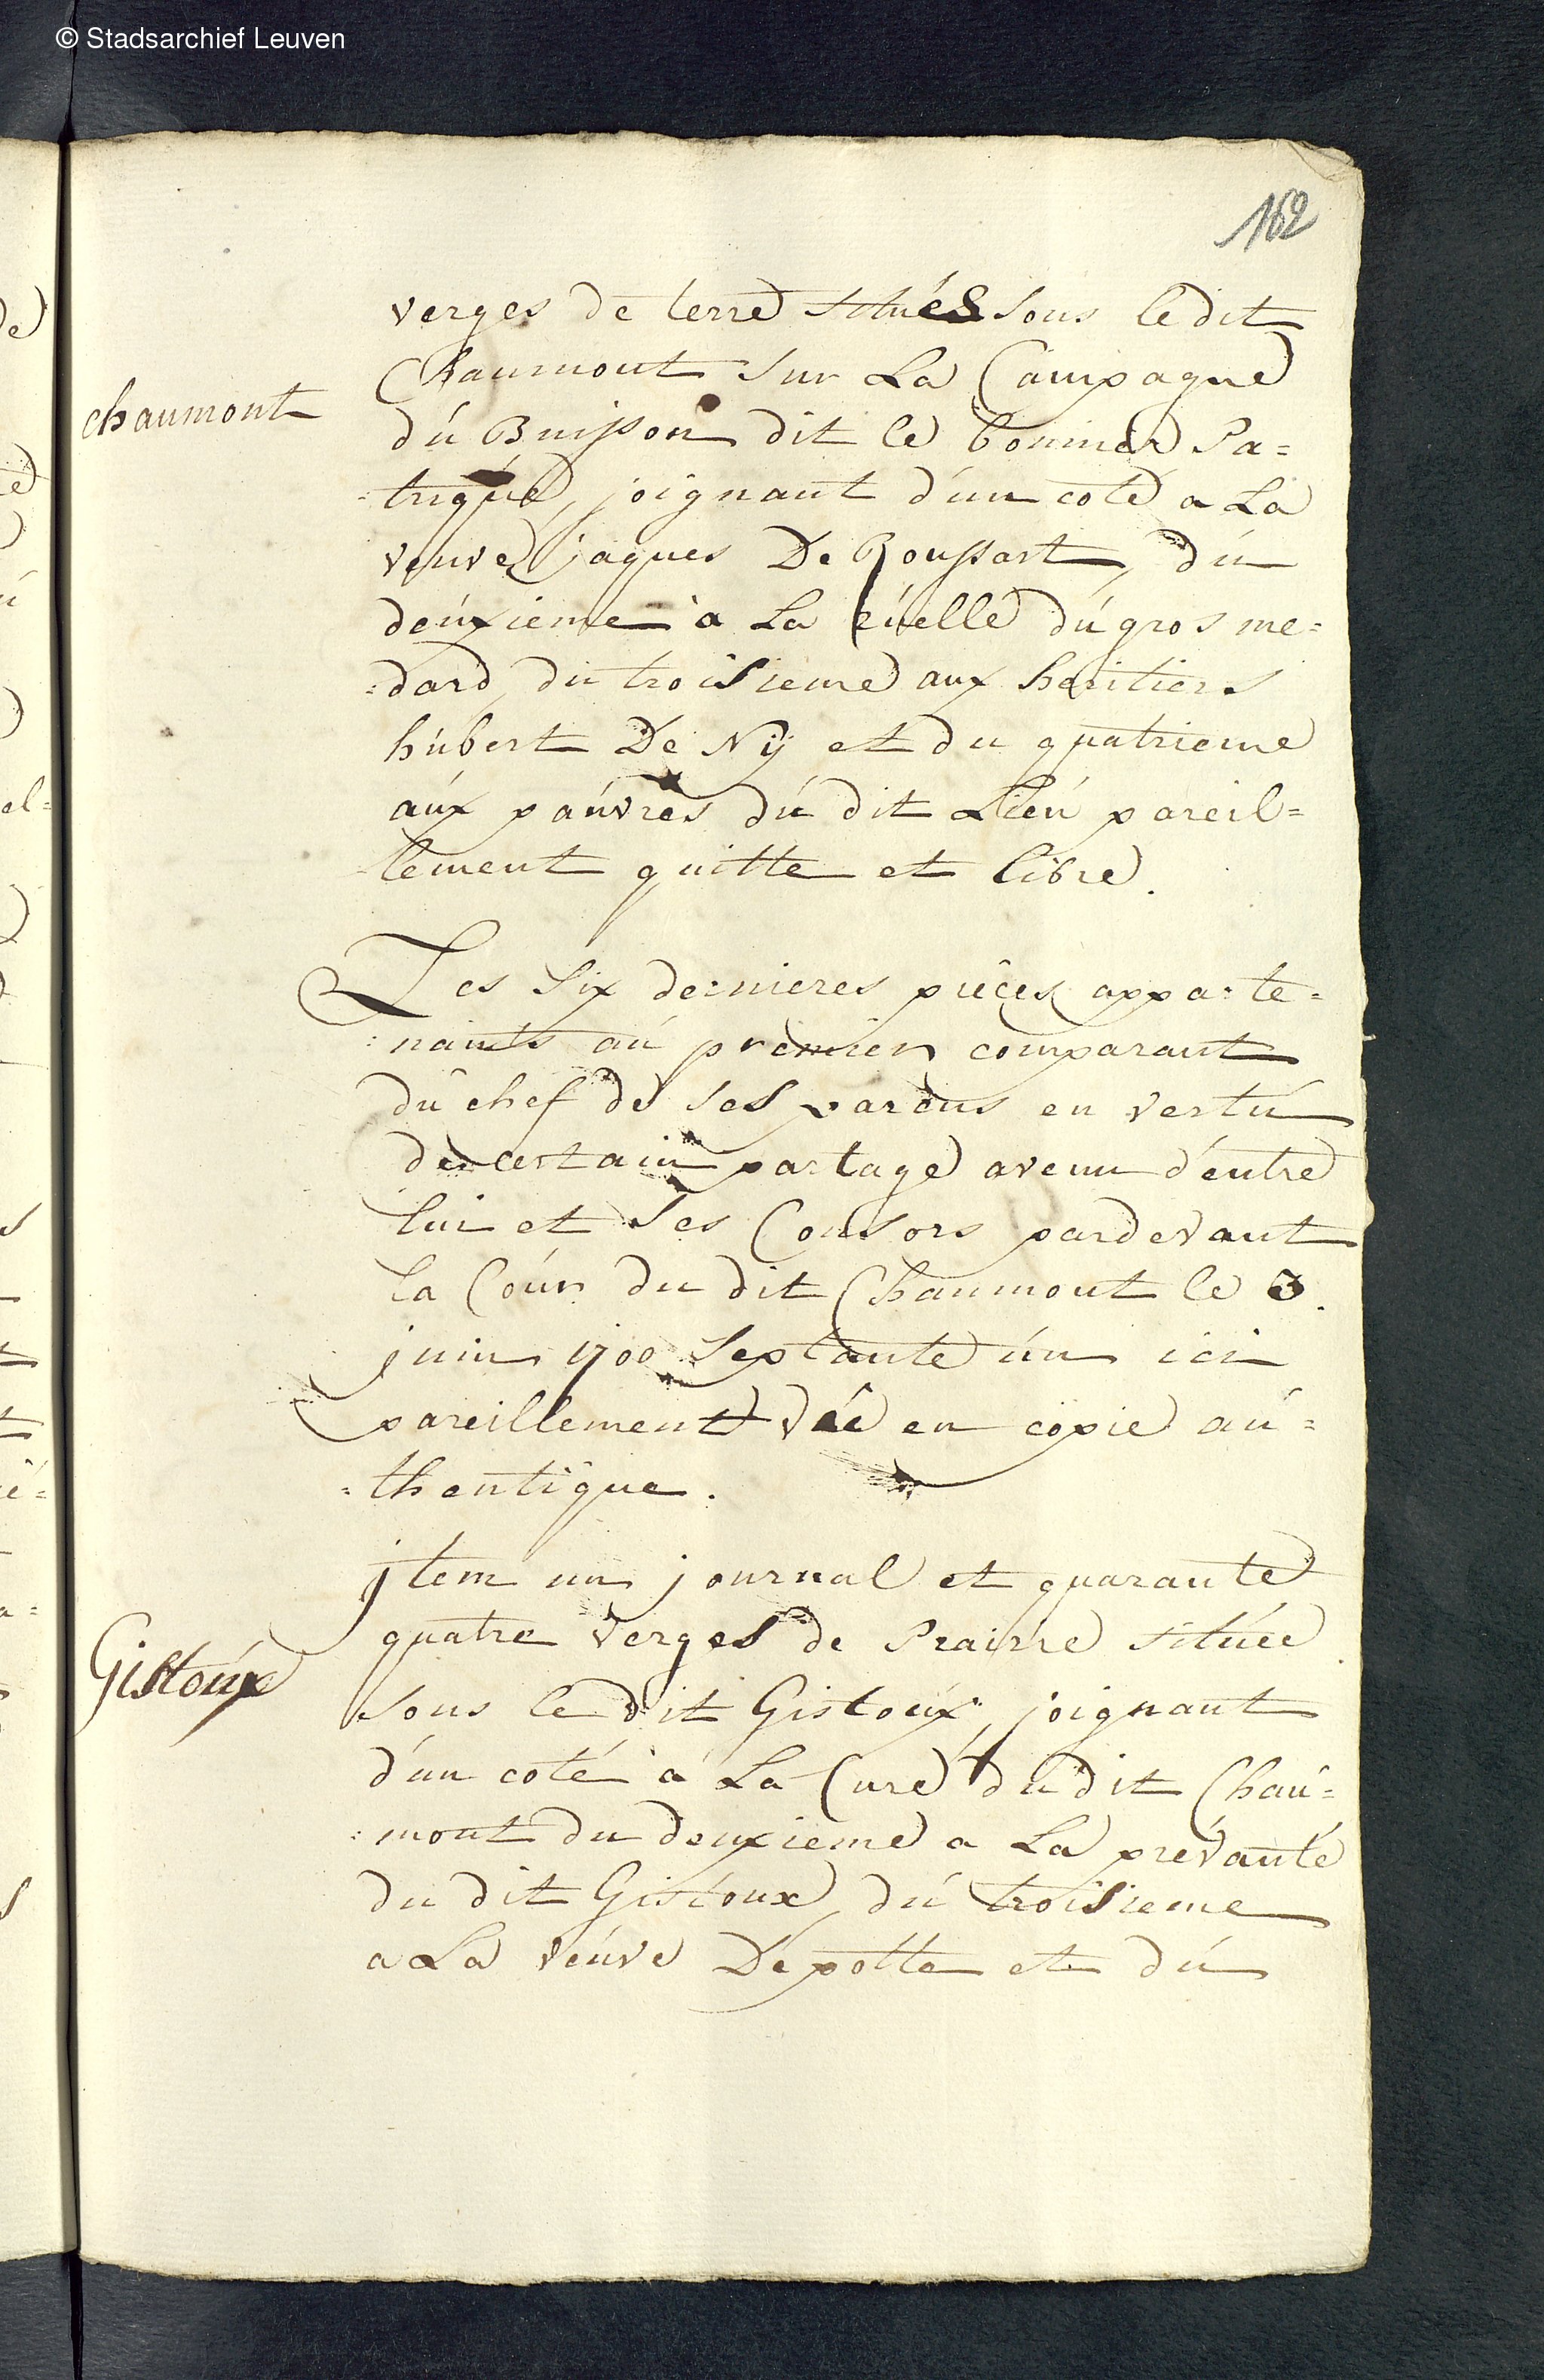 © Stadsarchief Leuven
162
verges de terre situées sous le dit
Chaumont sur La Campagne
chaumont
dú Buisson dit le bonnier Pa=
=trique, joignant d'un coté a La
veuve jaques De Roussart, dú
deúxieme à La rúelle dú gros me=
=dard, du troisieme aux heritiers
húbert De Nÿ et du quatrieme
aúx paúvres dú dit Lieú pareil=
lement quitte et libre.
Les six dernieres pièces apparte=
=nants aú premier comparant
dú chef de ses parens en vertú
de certain partage avenu d'entre
lui et ses Consors pardevant
la Coúr du dit Chaumont le 3.
juin 1700 Septante ún ici
pareillement vúe en copie aú=
=thentique.
jtem un journal et quarante
quatre verges de Prairie située
Gistoúx
sous le dit Gistoúx, joignant
d'un coté à La Cure du dit Chaú=
=mont du deuxieme a La prévauté
du dit Gistoux, dú troisieme
a La veúve Depotte et dú